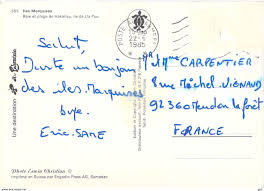 585 Iles Marquises
Baie et plage de Hakahau, Ile de Ua Pou
Salut,
Juste un bonjour
des iles Marquises
bye.
Eric SAME
POSTE
22-
1985
Mme CARPENTIER
8 rue Michel VIGNAUD
92360 Meudon la forêt
FRANCE
Une destination
Photo Erwin Christian ©
Imprimé en Suisse par Engadin Press AG, Samedan